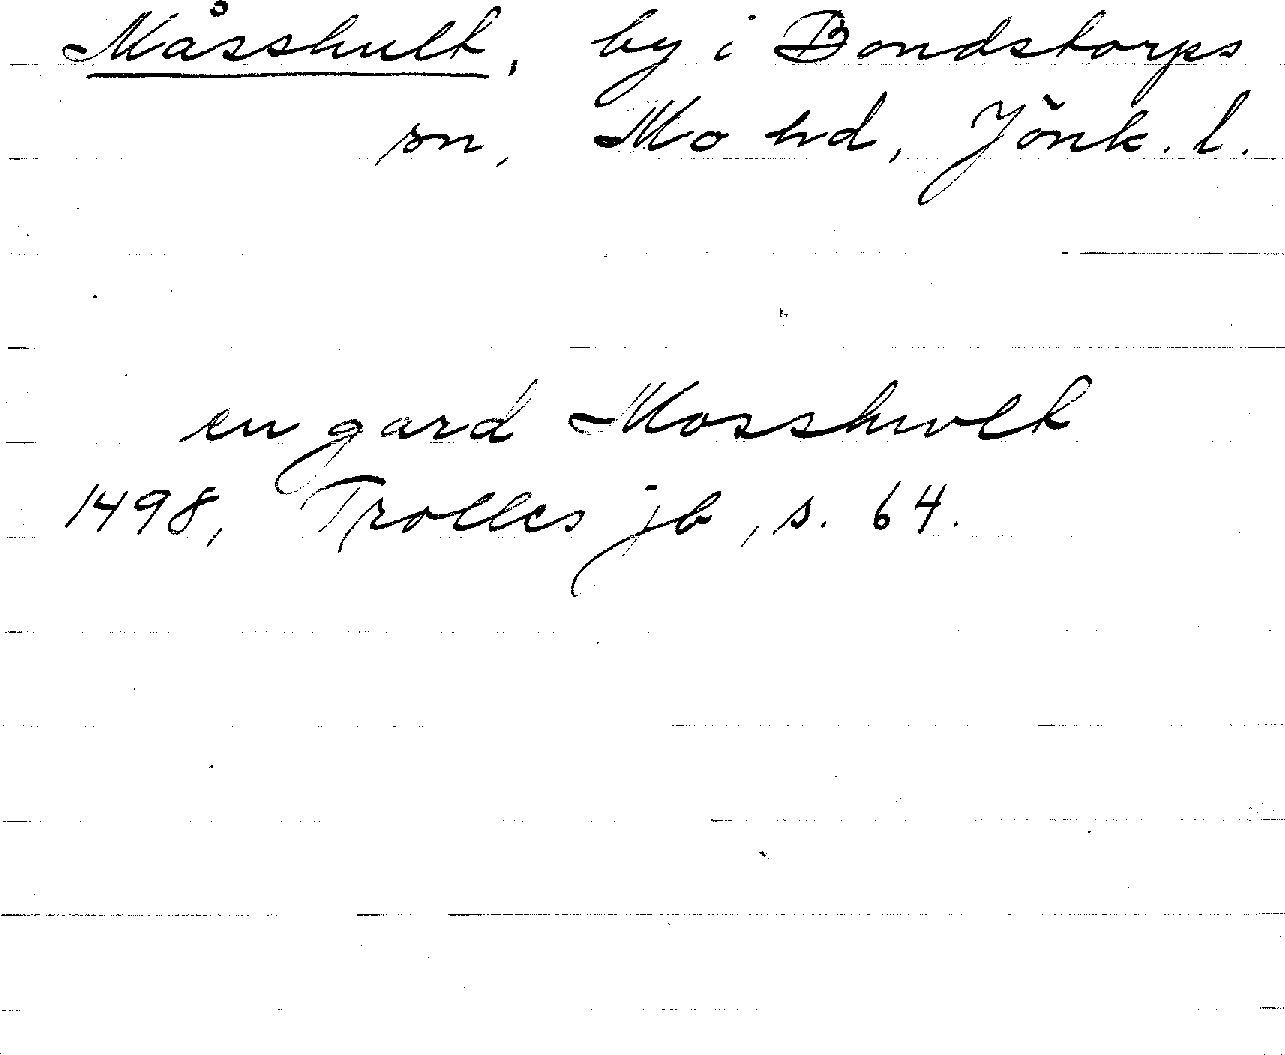 Måsshult, by i Bondstorps
sn, Mo hd, Jönk. l.
en gard Mosshwlt
1498, Trolles jb, s. 64.